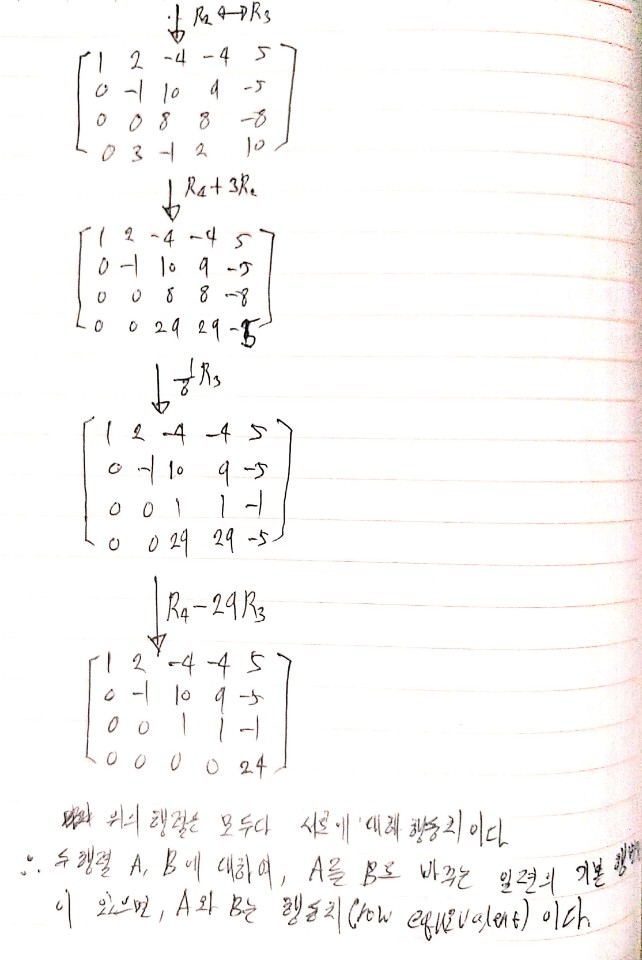 R₂ ↔ R₃
1 2 -4 -4 5
0 -1 10 9 -5
0 0 8 8 -8
0 3 -1 2 10
R₄ + 3R₂
1 2 -4 -4 5
0 -1 10 9 -5
0 0 8 8 -8
0 0 29 29 -5
1/8 R₃
1 2 -4 -4 5
0 -1 10 9 -5
0 0 1 1 -1
0 0 29 29 -5
R₄ - 29R₃
1 2 -4 -4 5
0 -1 10 9 -5
0 0 1 1 -1
0 0 0 0 24
위의 행렬은 모두다 서로에 대해 행동치이다
∴ 두 행렬 A, B에 대하여, A를 B로 바꾸는 일련의 기본
이 있으면, A와 B는 행동치(row equivalent)이다.